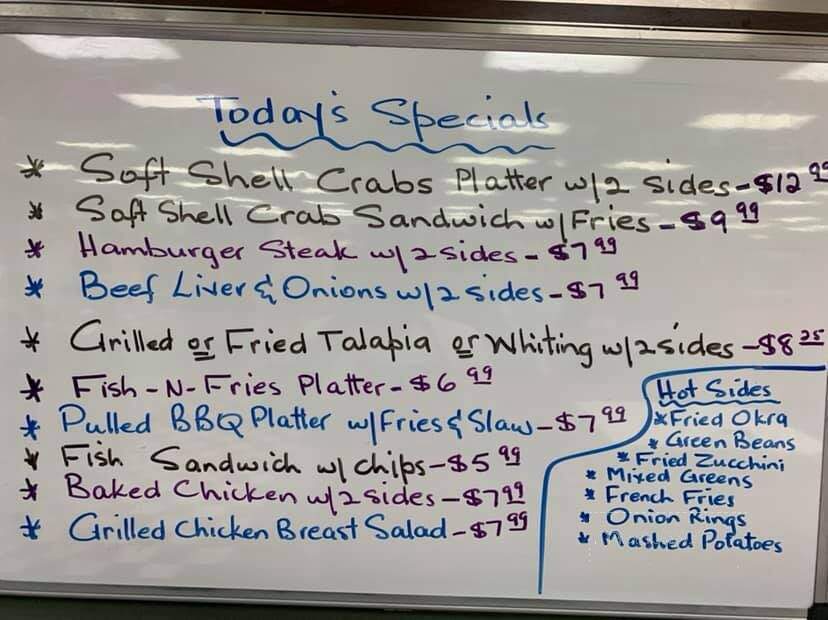 Today's Specials
* Soft Shell Crabs Platter w/2 sides - $12 99
* Soft Shell Crab Sandwich w/Fries - $9 99
* Hamburger Steak w/2 sides - $7 99
* Beef Liver & Onions w/2 sides - $7 99
* Grilled or Fried Talapia or Whiting w/2 sides - $8 25
* Fish-N-Fries Platter - $6 99
* Pulled BBQ Platter w/Fries & Slaw - $7 99
* Fish Sandwich w/ chips - $5 99
* Baked Chicken w/2 sides - $7 99
* Grilled Chicken Breast Salad - $7 99
Hot Sides
* Fried Okra
* Green Beans
* Fried Zucchini
* Mixed Greens
* French Fries
* Onion Rings
* Mashed Potatoes